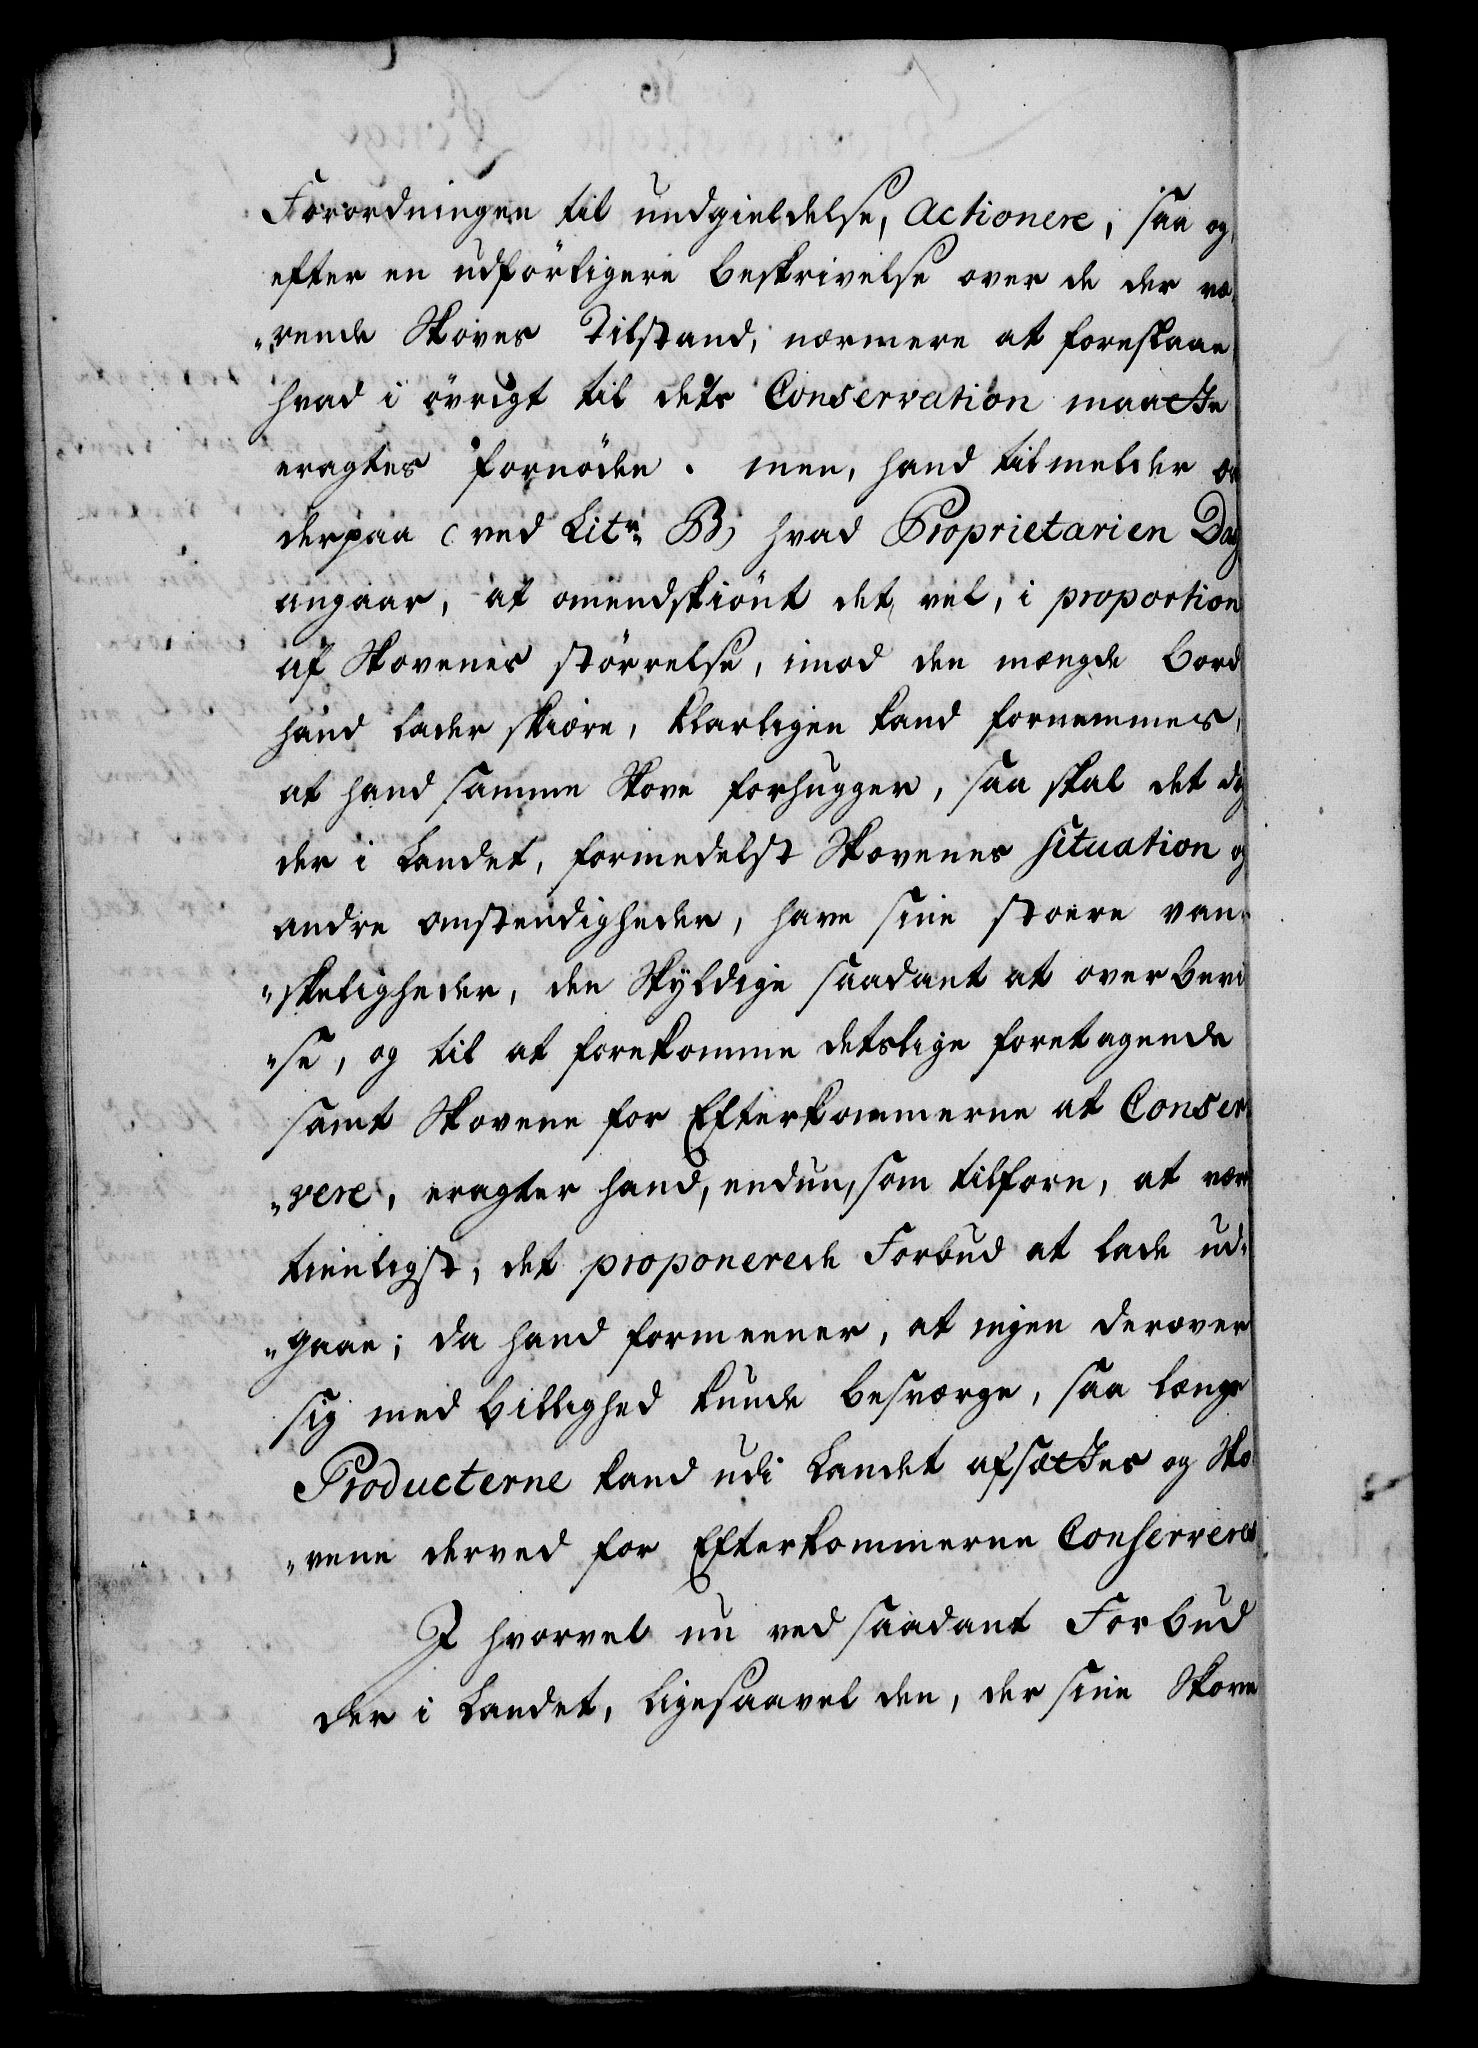 Forordningen til undgieldelse, Actionere, saa og
efter en udförligere beskrivelse over de der væ¬
„rende Skoves Tilstand, nærmere at foreslaae
hvad i övrigt til dets Conservation maatte
eragtes fornöden. men, hand tilmelder
derpaa (ved Litr. B) hvad Proprietarien
angaar, at omendskiönt det vel, i proportion
af Skovenes störrelse, imod den mængde bord
hand lader skiære, klarligen kand fornemmes,
at hand samme Skove forhugger, saa skal det dog
der i Landet, formedelst Skovenes situation og
andre omstendigheder, have sine stoere van¬
„skeligheder, den Skyldige saadant at overbevi
„se, og til at forekomme detslige foretagende
samt Skovene for Efterkommerne at Conser¬
„vere, eragter hand, endnu, som tilforn, at være
tienligst, det proponerede Forbud at lade ud¬
„gaae; da hand formeener, at ingen derover
sig med billighed kunde besværge, saa længe
Producterne kand udi Landet afsættes og Sko
„vene derved for Efterkommerne Conserveres
I hvorvel nu ved saadant Forbud
der i Landet, ligesaavel den, der sine Skove